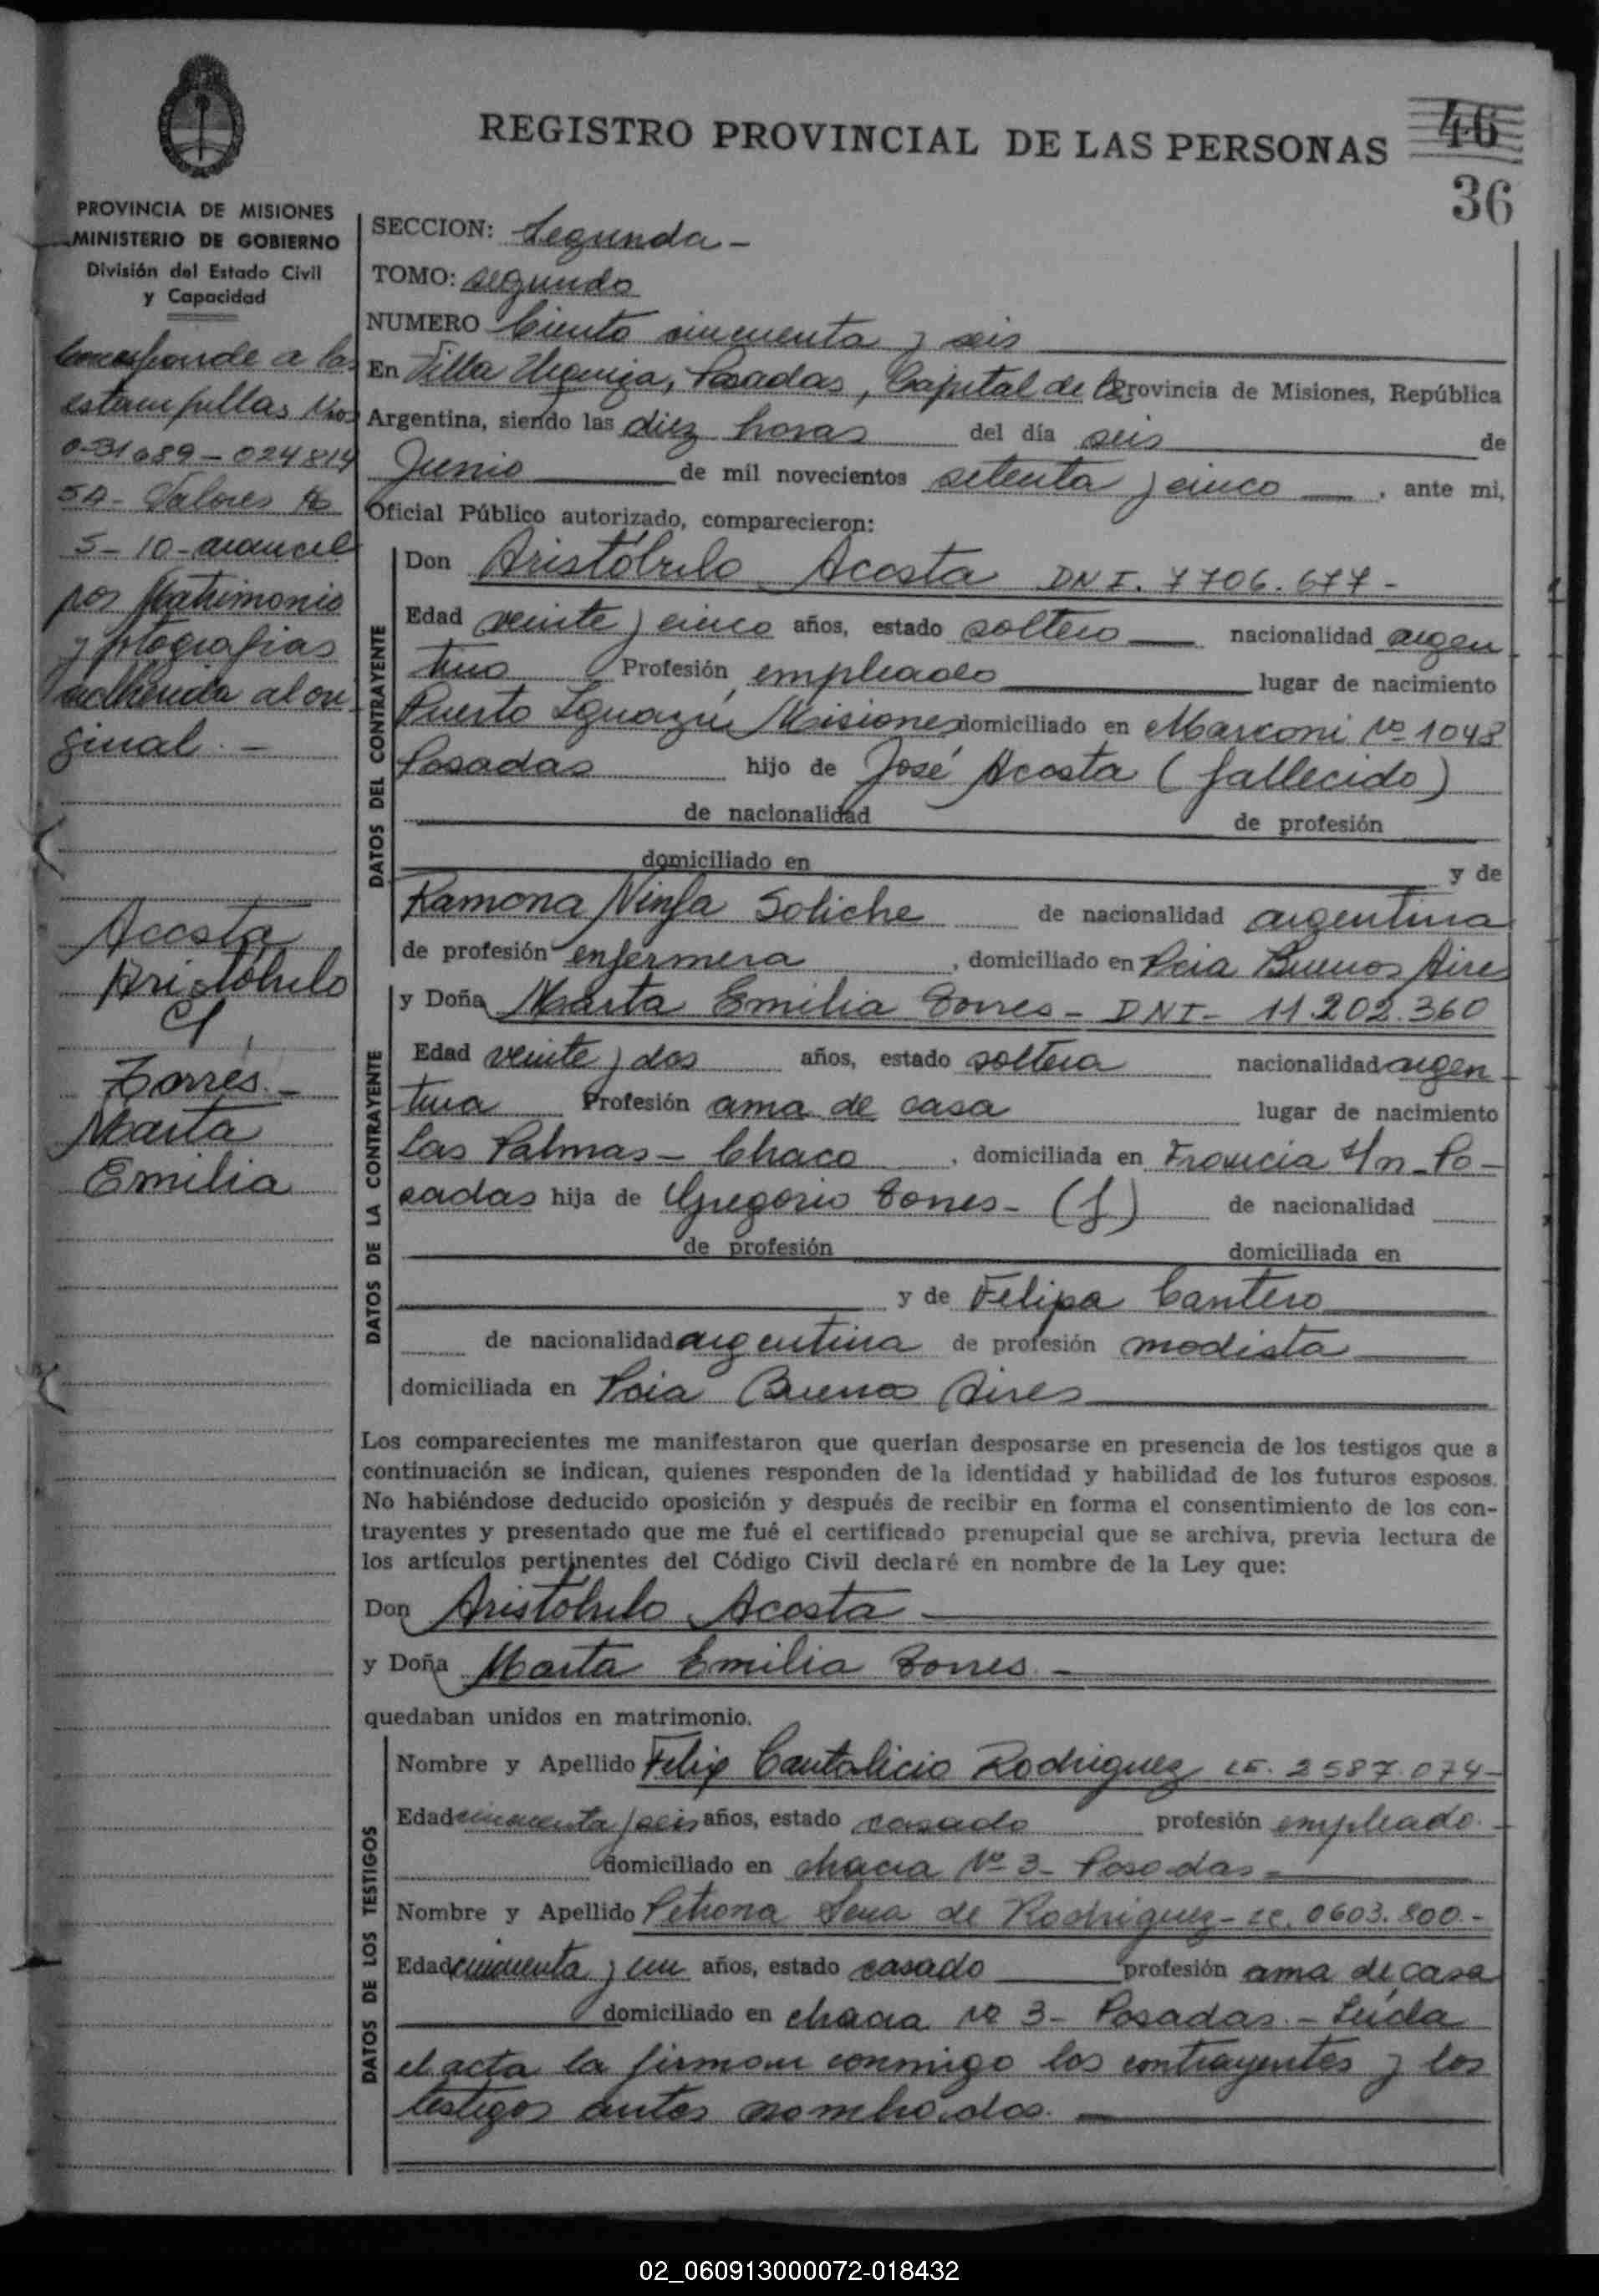 REGISTRO PROVINCIAL DE LAS PERSONAS
46
36
PROVINCIA DE MISIONES
MINISTERIO DE GOBIERNO
División del Estado Civil
y Capacidad
Corresponde a las
estampillas Nros
031689-024814
54- Valores
5-10-arancel
por Matrimonio
y fotografias
adherida al ori
ginal.-
Acosta
Aristóbulo
c/
Torres.-
Marta
Emilia
SECCION: Segunda-
TOMO: segundo
NUMERO Ciento cincuenta y seis
En Villa Urquiza, Posadas, Capital de la Provincia de Misiones, República
Argentina, siendo las diez horas del día seis de
Junio de mil novecientos setenta y cinco, ante mi,
Oficial Público autorizado, comparecieron:
DATOS DEL CONTRAYENTE
Don Aristóbulo Acosta DNI. 7706.677-
Edad veinte y cinco años, estado soltero nacionalidad argen
tino Profesión empleado lugar de nacimiento
Puerto Iguazú Misiones domiciliado en Marconi Nº 1048
Posadas hijo de José Acosta (fallecido)
de nacionalidad de profesión
domiciliado en y de
Ramona Ninfa Soliche de nacionalidad argentina
de profesión enfermera, domiciliado en Pcia Buenos Aires
DATOS DE LA CONTRAYENTE
y Doña Marta Emilia Torres- DNI- 11.202.360
Edad veinte y dos años, estado soltera nacionalidad argen
tina Profesión ama de casa lugar de nacimiento
Las Palmas- Chaco, domiciliada en Francia S/n- Po-
sadas hija de Gregorio Torres- (f) de nacionalidad
de profesión domiciliada en
y de Felipa Cantero
de nacionalidad argentina de profesión modista
domiciliada en Pcia Buenos Aires
Los comparecientes me manifestaron que querían desposarse en presencia de los testigos que a
continuación se indican, quienes responden de la identidad y habilidad de los futuros esposos.
No habiéndose deducido oposición y después de recibir en forma el consentimiento de los con-
trayentes y presentado que me fué el certificado prenupcial que se archiva, previa lectura de
los artículos pertinentes del Código Civil declaré en nombre de la Ley que:
Don Aristóbulo Acosta
y Doña Marta Emilia Torres.-
quedaban unidos en matrimonio.
DATOS DE LOS TESTIGOS
Nombre y Apellido Felix Cantalicio Rodriguez LE. 2587.074-
Edad cincuenta y seis años, estado casado profesión empleado.
domiciliado en chacra Nº 3- Posadas-
Nombre y Apellido Petrona Sena de Rodriguez- LC. 0603.800.-
Edad cincuenta y un años, estado casado profesión ama de casa
domiciliado en chacra Nº 3- Posadas.- Leida
el acta la firman conmigo los contrayentes y los
testigos antes nombrados.-
02_060913000072-018432